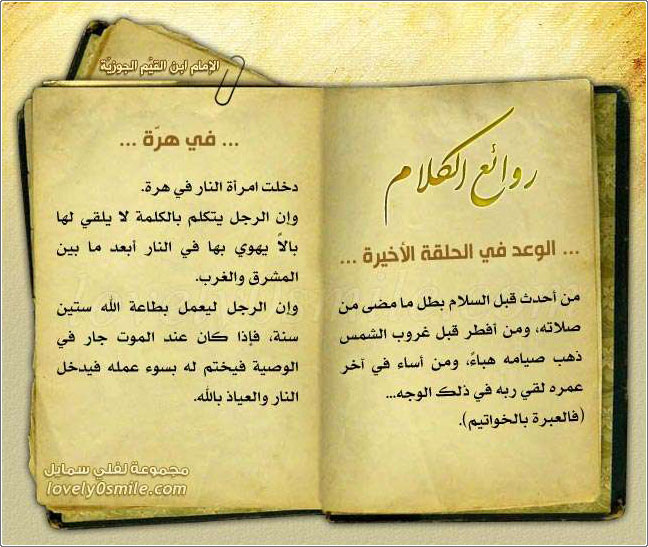 الإمام ابن القيّم الجوزيّة
روائع الكلام
... الوعد في الحلقة الأخيرة ...
من أحدث قبل السلام بطل ما مضى من
صلاته، ومن أفطر قبل غروب الشمس
ذهب صيامه هباءً، ومن أساء في آخر
عمره لقي ربه في ذلك الوجه...
(فالعبرة بالخواتيم).
... في هرّة ...
دخلت امرأة النار في هرة.
وإن الرجل يتكلم بالكلمة لا يلقي لها
بالاً يهوي بها في النار أبعد ما بين
المشرق والغرب.
وإن الرجل ليعمل بطاعة الله ستين
سنة، فإذا كان عند الموت جار في
الوصية فيختم له بسوء عمله فيدخل
النار والعياذ بالله.
مجموعة لفلي سمايل
lovely0smile.com